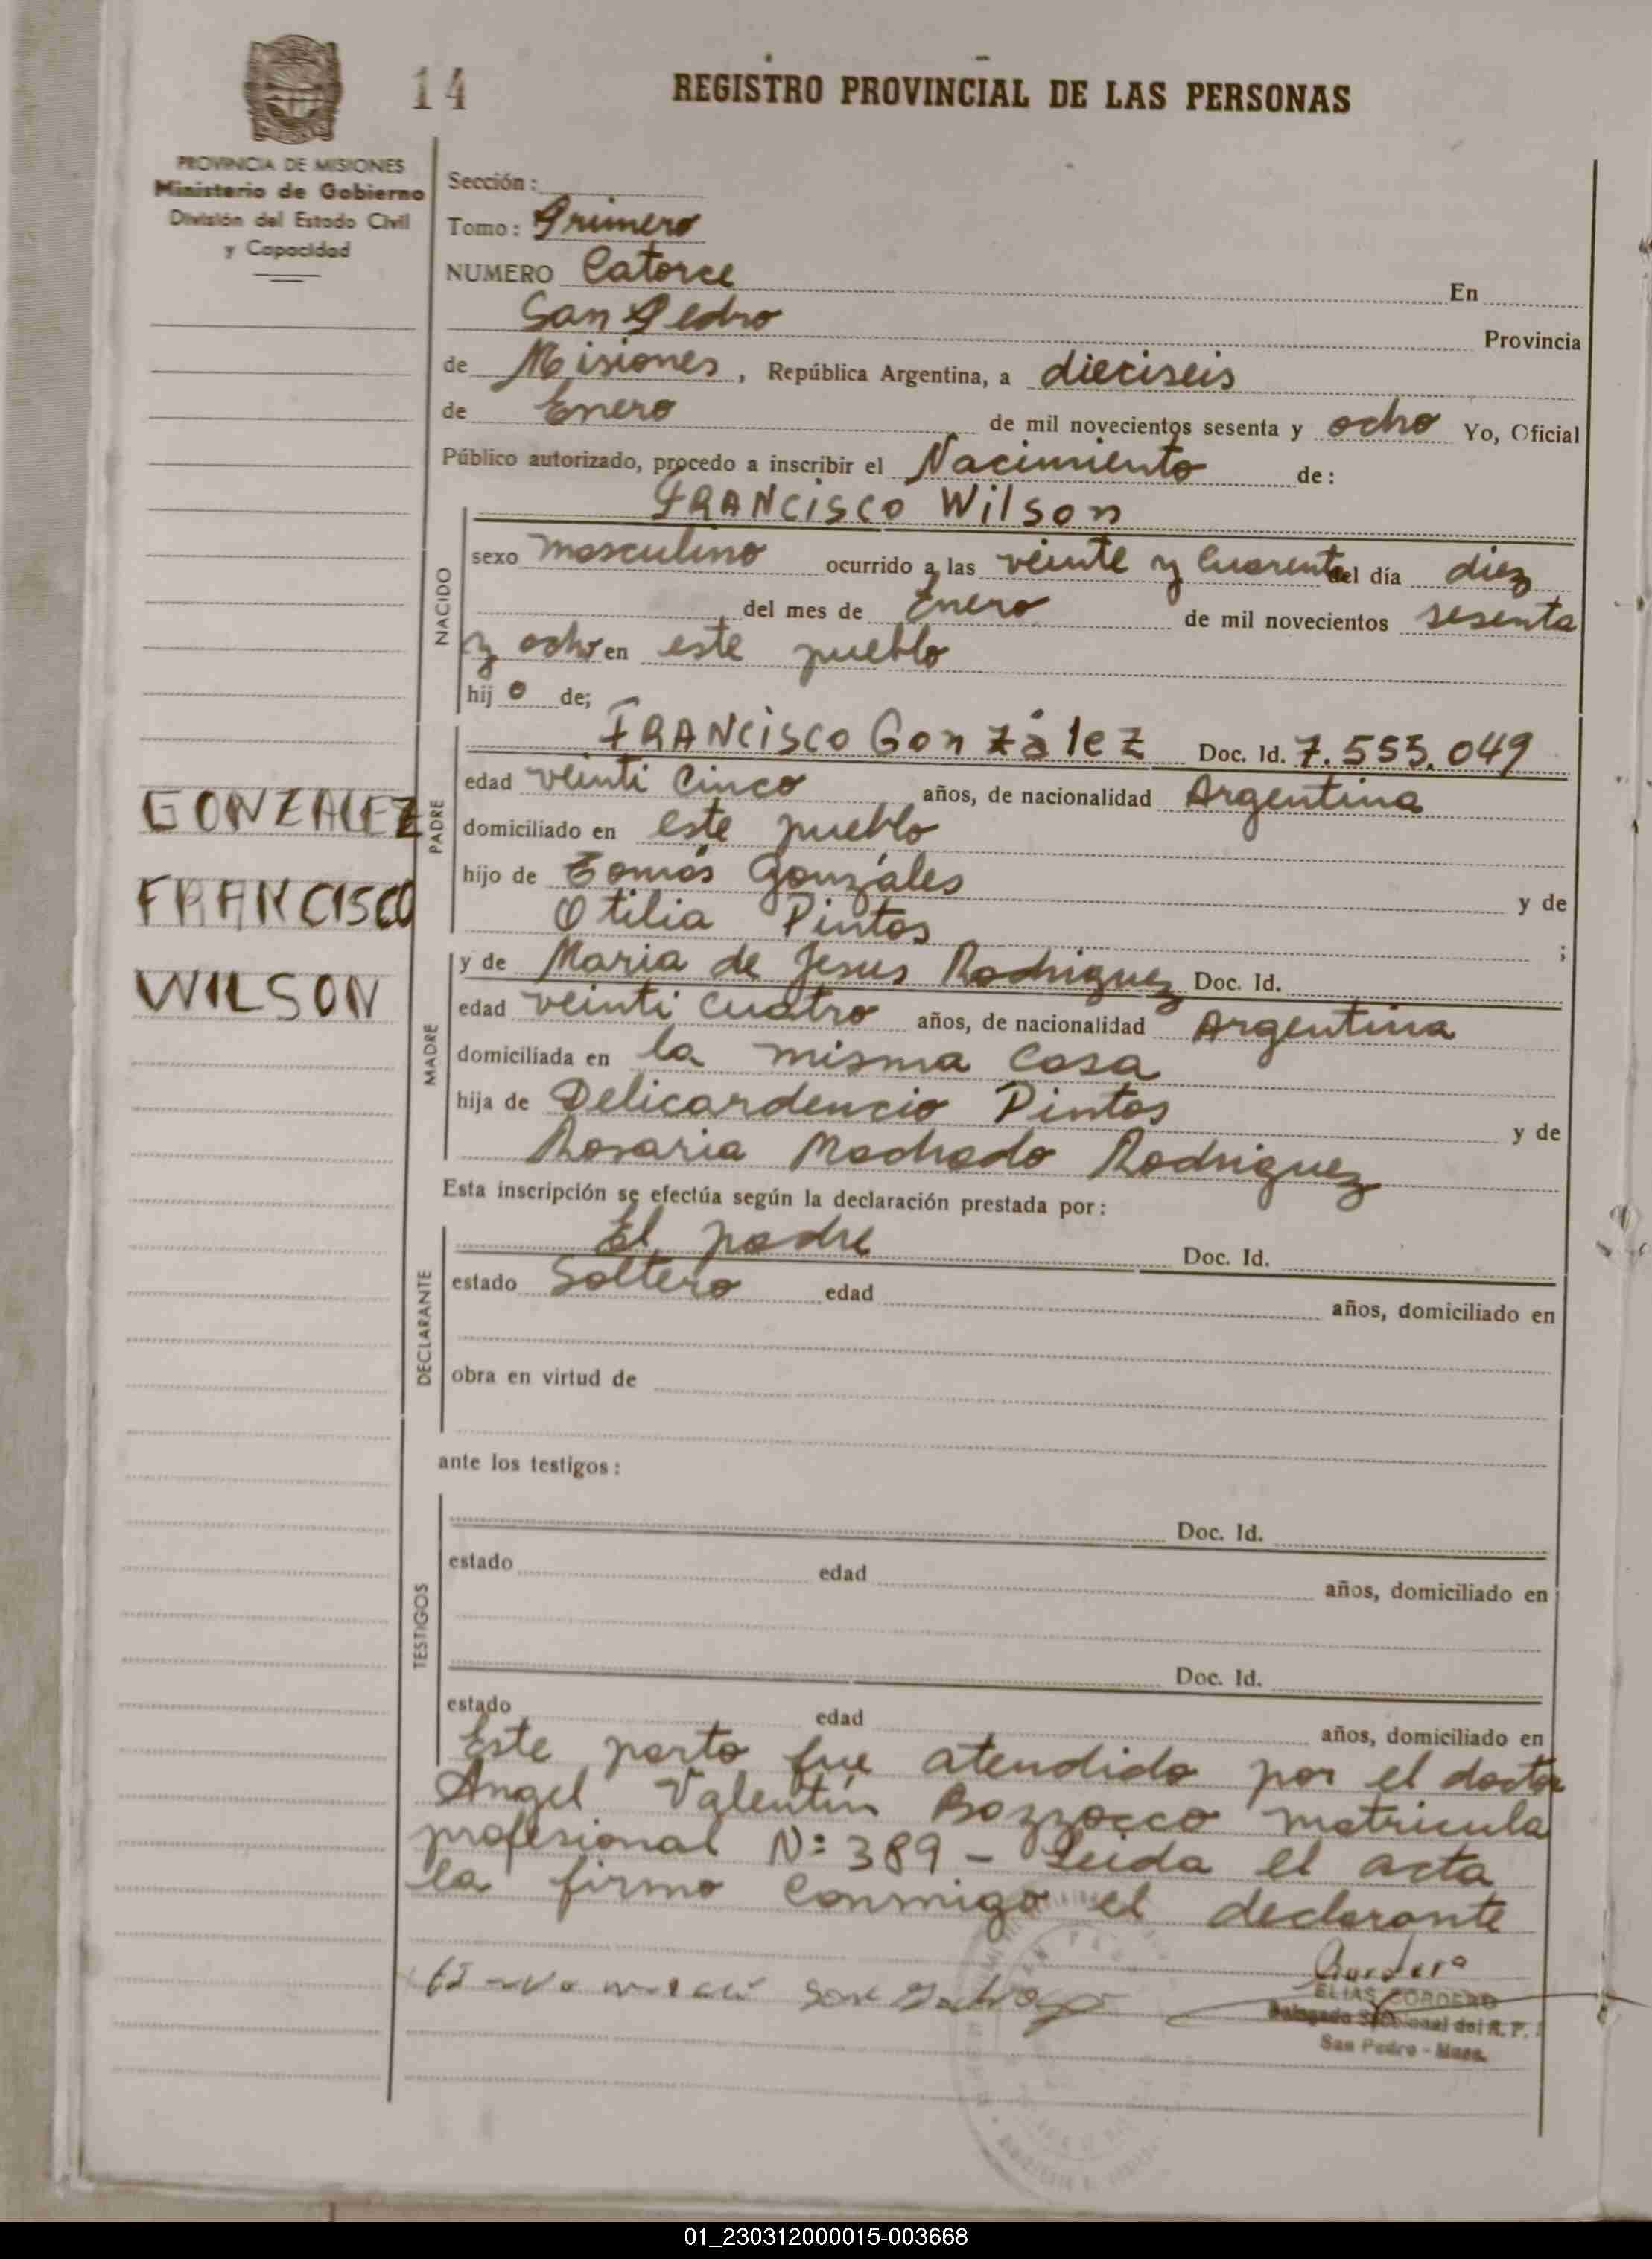 14
REGISTRO PROVINCIAL DE LAS PERSONAS
PROVINCIA DE MISIONES
Ministerio de Gobierno
División del Estado Civil
y Capacidad
Sección:
Tomo: Primero
NUMERO Catorce En
San Pedro Provincia
de Misiones, República Argentina, a dieciseis
de Enero de mil novecientos sesenta y ocho Yo, Oficial
Público autorizado, procedo a inscribir el Nacimiento de:
FRANCISCO Wilson
NACIDO
sexo masculino ocurrido a las veinte y Cuarenta del día diez
del mes de Enero de mil novecientos sesenta
y ocho en este pueblo
hijo de;
GONZALEZ
FRANCISCO
WILSON
PADRE
FRANCISCO González Doc. Id. 7.555.049
edad veinti Cinco años, de nacionalidad Argentina
domiciliado en este pueblo
hijo de Tomás Gonzáles y de
Otilia Pintos ;
MADRE
y de Maria de Jesus Rodriguez Doc. Id.
edad veinti cuatro años, de nacionalidad Argentina
domiciliada en la misma Casa
hija de Delicardencio Pintos y de
Rosaria Machado Rodriguez
Esta inscripción se efectúa según la declaración prestada por:
DECLARANTE
El padre Doc. Id.
estado Soltero edad años, domiciliado en
obra en virtud de
ante los testigos:
TESTIGOS
Doc. Id.
estado edad años, domiciliado en
Doc. Id.
estado edad años, domiciliado en
Este parto fue atendido por el doctor
Angel Valentín Bozzocco matricula
profesional N: 389 - Leida el acta
la firma Conmigo el declarante
ELIAS CORDERO
Delegado Seccional del R. P.
San Pedro - Mnes.
01_230312000015-003668